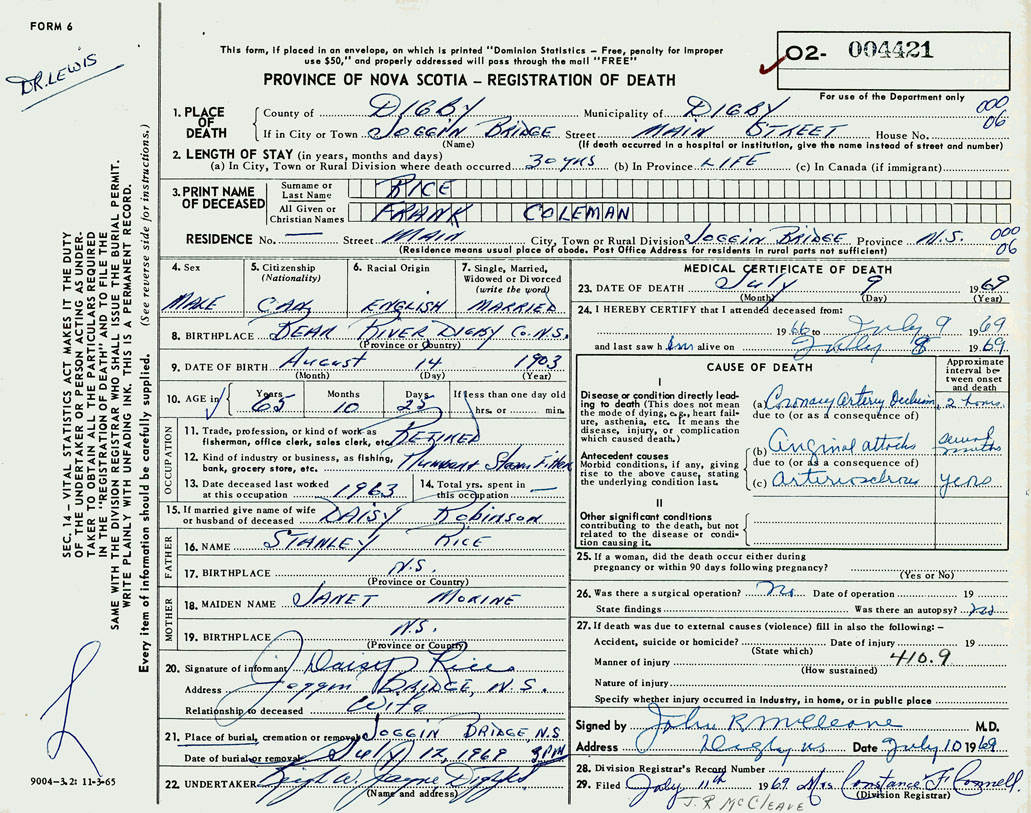 FORM 6
DR. LEWIS
This form, if placed in an envelope, on which is printed "Dominion Statistics – Free, penalty for improper
use $50," and properly addressed will pass through the mail "FREE"
PROVINCE OF NOVA SCOTIA – REGISTRATION OF DEATH
02- 004421
For use of the Department only
1. PLACE OF DEATH County of DIGBY Municipality of DIGBY 000
If in City or Town JOGGIN BRIDGE Street MAIN STREET House No. 06
(Name) (If death occurred in a hospital or institution, give the name instead of street and number)
2. LENGTH OF STAY (in years, months and days)
(a) In City, Town or Rural Division where death occurred 30 yrs (b) In Province LIFE (c) In Canada (if immigrant)
3. PRINT NAME OF DECEASED Surname or Last Name RICE
All Given or Christian Names FRANK COLEMAN
RESIDENCE No. — Street MAIN City, Town or Rural Division JOGGIN BRIDGE Province N.S. 000 06
(Residence means usual place of abode. Post Office Address for residents in rural parts not sufficient)
4. Sex 5. Citizenship (Nationality) 6. Racial Origin 7. Single, Married, Widowed or Divorced (write the word)
MALE CAN. ENGLISH MARRIED
8. BIRTHPLACE BEAR RIVER DIGBY Co. N.S.
(Province or Country)
9. DATE OF BIRTH August 14 1903
(Month) (Day) (Year)
10. AGE in Years Months Days If less than one day old
65 10 25 hrs. or min.
OCCUPATION
11. Trade, profession, or kind of work as fisherman, office clerk, sales clerk, etc. RETIRED
12. Kind of industry or business, as fishing, bank, grocery store, etc. Plumber + Steam Fitter
13. Date deceased last worked at this occupation 1963 14. Total yrs. spent in this occupation —
15. If married give name of wife or husband of deceased DAISY Robinson
FATHER
16. NAME STANLEY RICE
17. BIRTHPLACE N.S.
(Province or Country)
MOTHER
18. MAIDEN NAME JANET MORINE
19. BIRTHPLACE N.S.
(Province or Country)
20. Signature of informant Daisy Rice
Address Joggin BRIDGE, N.S.
Relationship to deceased Wife
21. Place of burial, cremation or removal JOGGIN BRIDGE N.S
Date of burial or removal July 12, 1969 3 PM
22. UNDERTAKER W. Jayne Digby
(Name and address)
MEDICAL CERTIFICATE OF DEATH
23. DATE OF DEATH July 9 1969
(Month) (Day) (Year)
24. I HEREBY CERTIFY that I attended deceased from:
1966 to July 9 1969
and last saw him alive on July 8 1969
CAUSE OF DEATH
Approximate interval between onset and death
I
Disease or condition directly leading to death (This does not mean the mode of dying, e.g., heart failure, asthenia, etc. It means the disease, injury, or complication which caused death.)
(a) Coronary Artery Occlusion 2 hours
due to (or as a consequence of)
Antecedent causes
Morbid conditions, if any, giving rise to the above cause, stating the underlying condition last.
(b) Anginal attacks several months
due to (or as a consequence of)
(c) arteriosclerosis years
II
Other significant conditions contributing to the death, but not related to the disease or condition causing it.
25. If a woman, did the death occur either during pregnancy or within 90 days following pregnancy?
(Yes or No)
26. Was there a surgical operation? No Date of operation 19
State findings Was there an autopsy? No
27. If death was due to external causes (violence) fill in also the following: –
Accident, suicide or homicide? Date of injury 19
(State which)
Manner of injury 410.9
(How sustained)
Nature of injury
Specify whether injury occurred in Industry, in home, or in public place
Signed by John R McCleave M.D.
Address Digby NS Date July 10 1969
28. Division Registrar's Record Number
29. Filed July 11th 1969 Mrs Constance F. Connell
(Division Registrar)
J. R McCLEAVE
SEC. 14 – VITAL STATISTICS ACT MAKES IT THE DUTY
OF THE UNDERTAKER OR PERSON ACTING AS UNDER-
TAKER TO OBTAIN ALL THE PARTICULARS REQUIRED
IN THE "REGISTRATION OF DEATH" AND TO FILE THE
SAME WITH THE DIVISION REGISTRAR WHO SHALL ISSUE THE BURIAL PERMIT.
WRITE PLAINLY WITH UNFADING INK. THIS IS A PERMANENT RECORD.
Every item of information should be carefully supplied. (See reverse side for instructions.)
9004–3.2: 11-3-65